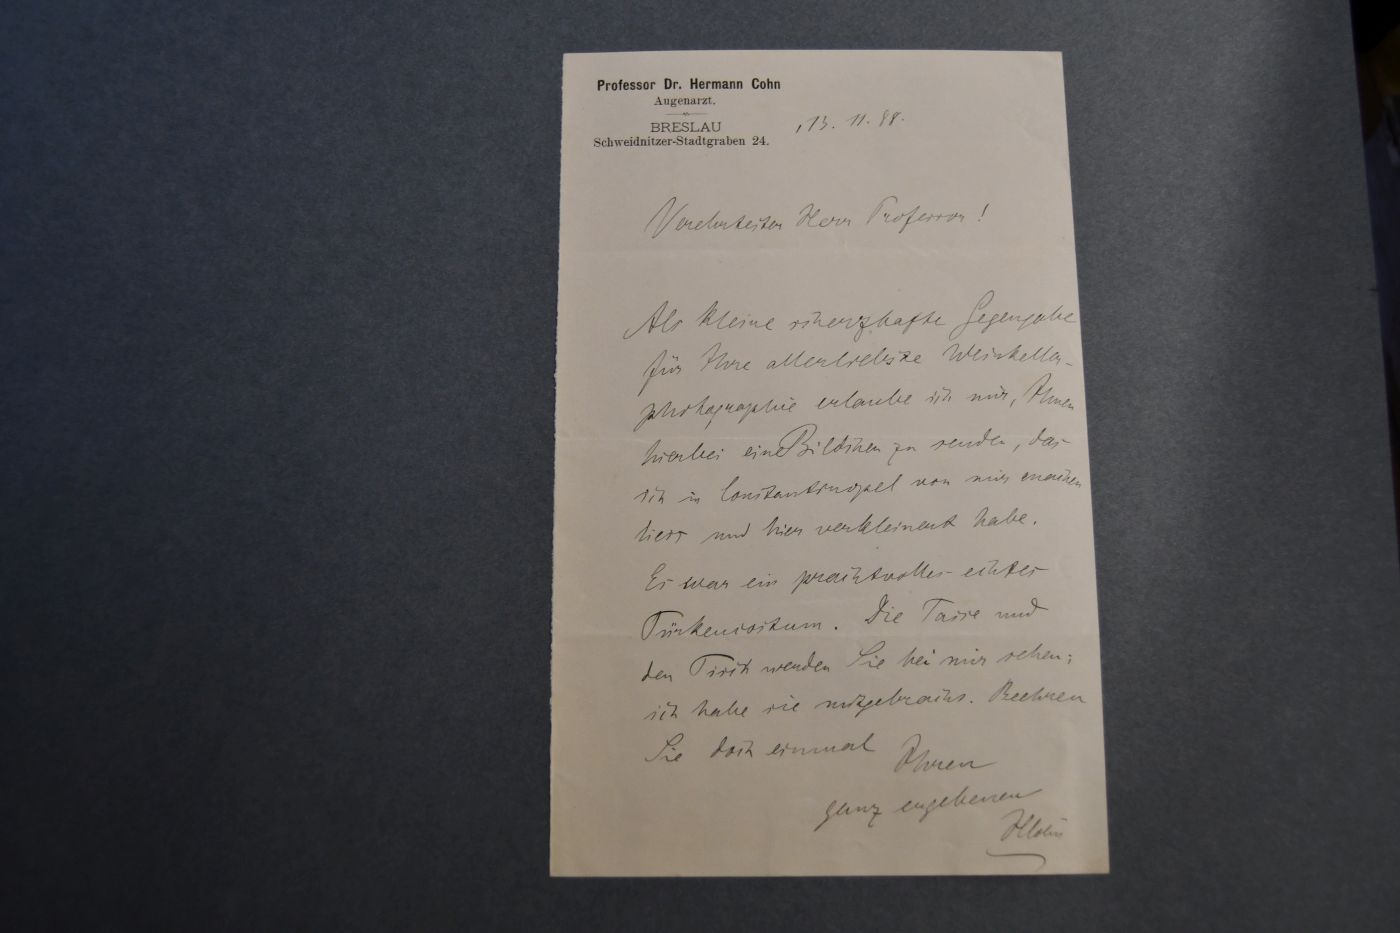 Professor Dr. Hermann Cohn
Augenarzt.
BRESLAU
Schweidnitzer-Stadtgraben 24.
13. 11. 98.
Verehrtester Herr Professor!
Als kleine scherzhafte Gegengabe
für Ihre allerliebste Weinkeller-
photographie erlaube ich mir, Ihnen
hierbei ein Bildchen zu senden, das
ich in Constantinopel von mir machen
liess und hier verkleinert habe.
Es war ein prachtvolles echtes
Türkencostum. Die Tasse und
den Tisch werden Sie bei mir sehen;
ich habe sie mitgebracht. Beehren
Sie doch einmal
Ihren
ganz ergebenen
HCohn